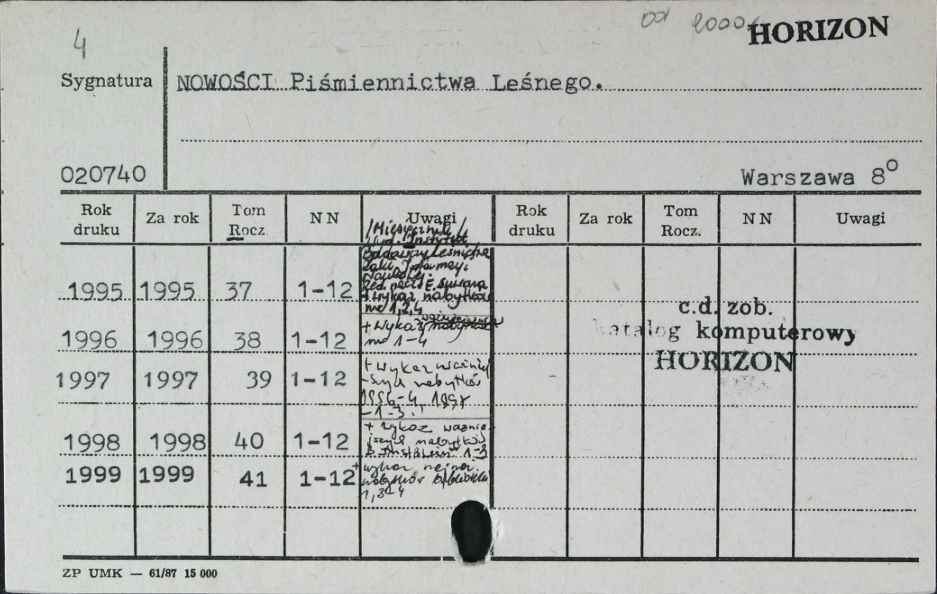 4
od 2000 HORIZON
Sygnatura
NOWOŚCI Piśmiennictwa Leśnego.
020740
Warszawa 8°
Rok druku Za rok Tom Rocz. NN Uwagi Rok druku Za rok Tom Rocz. NN Uwagi
/Miesięcznik/
wyd. Instytut
Badawczy Leśnictwa
Zakł. Informacji
Naukowej
1995 1995 37 1-12
+ wykaz nabytków
nr 1,2,4
c.d. zob.
katalog komputerowy
HORIZON
1996 1996 38 1-12 + wykaz nabytków
nr 1-4
1997 1997 39 1-12 + wykaz ważniej-
szych nabytków
1996-4, 1997
-1-3
1998 1998 40 1-12 + wykaz ważnie
jszych nabytków
1-3
1999 1999 41 1-12 + wykaz
nabytków biblioteki
1,3-4
ZP UMK — 61/87 15 000